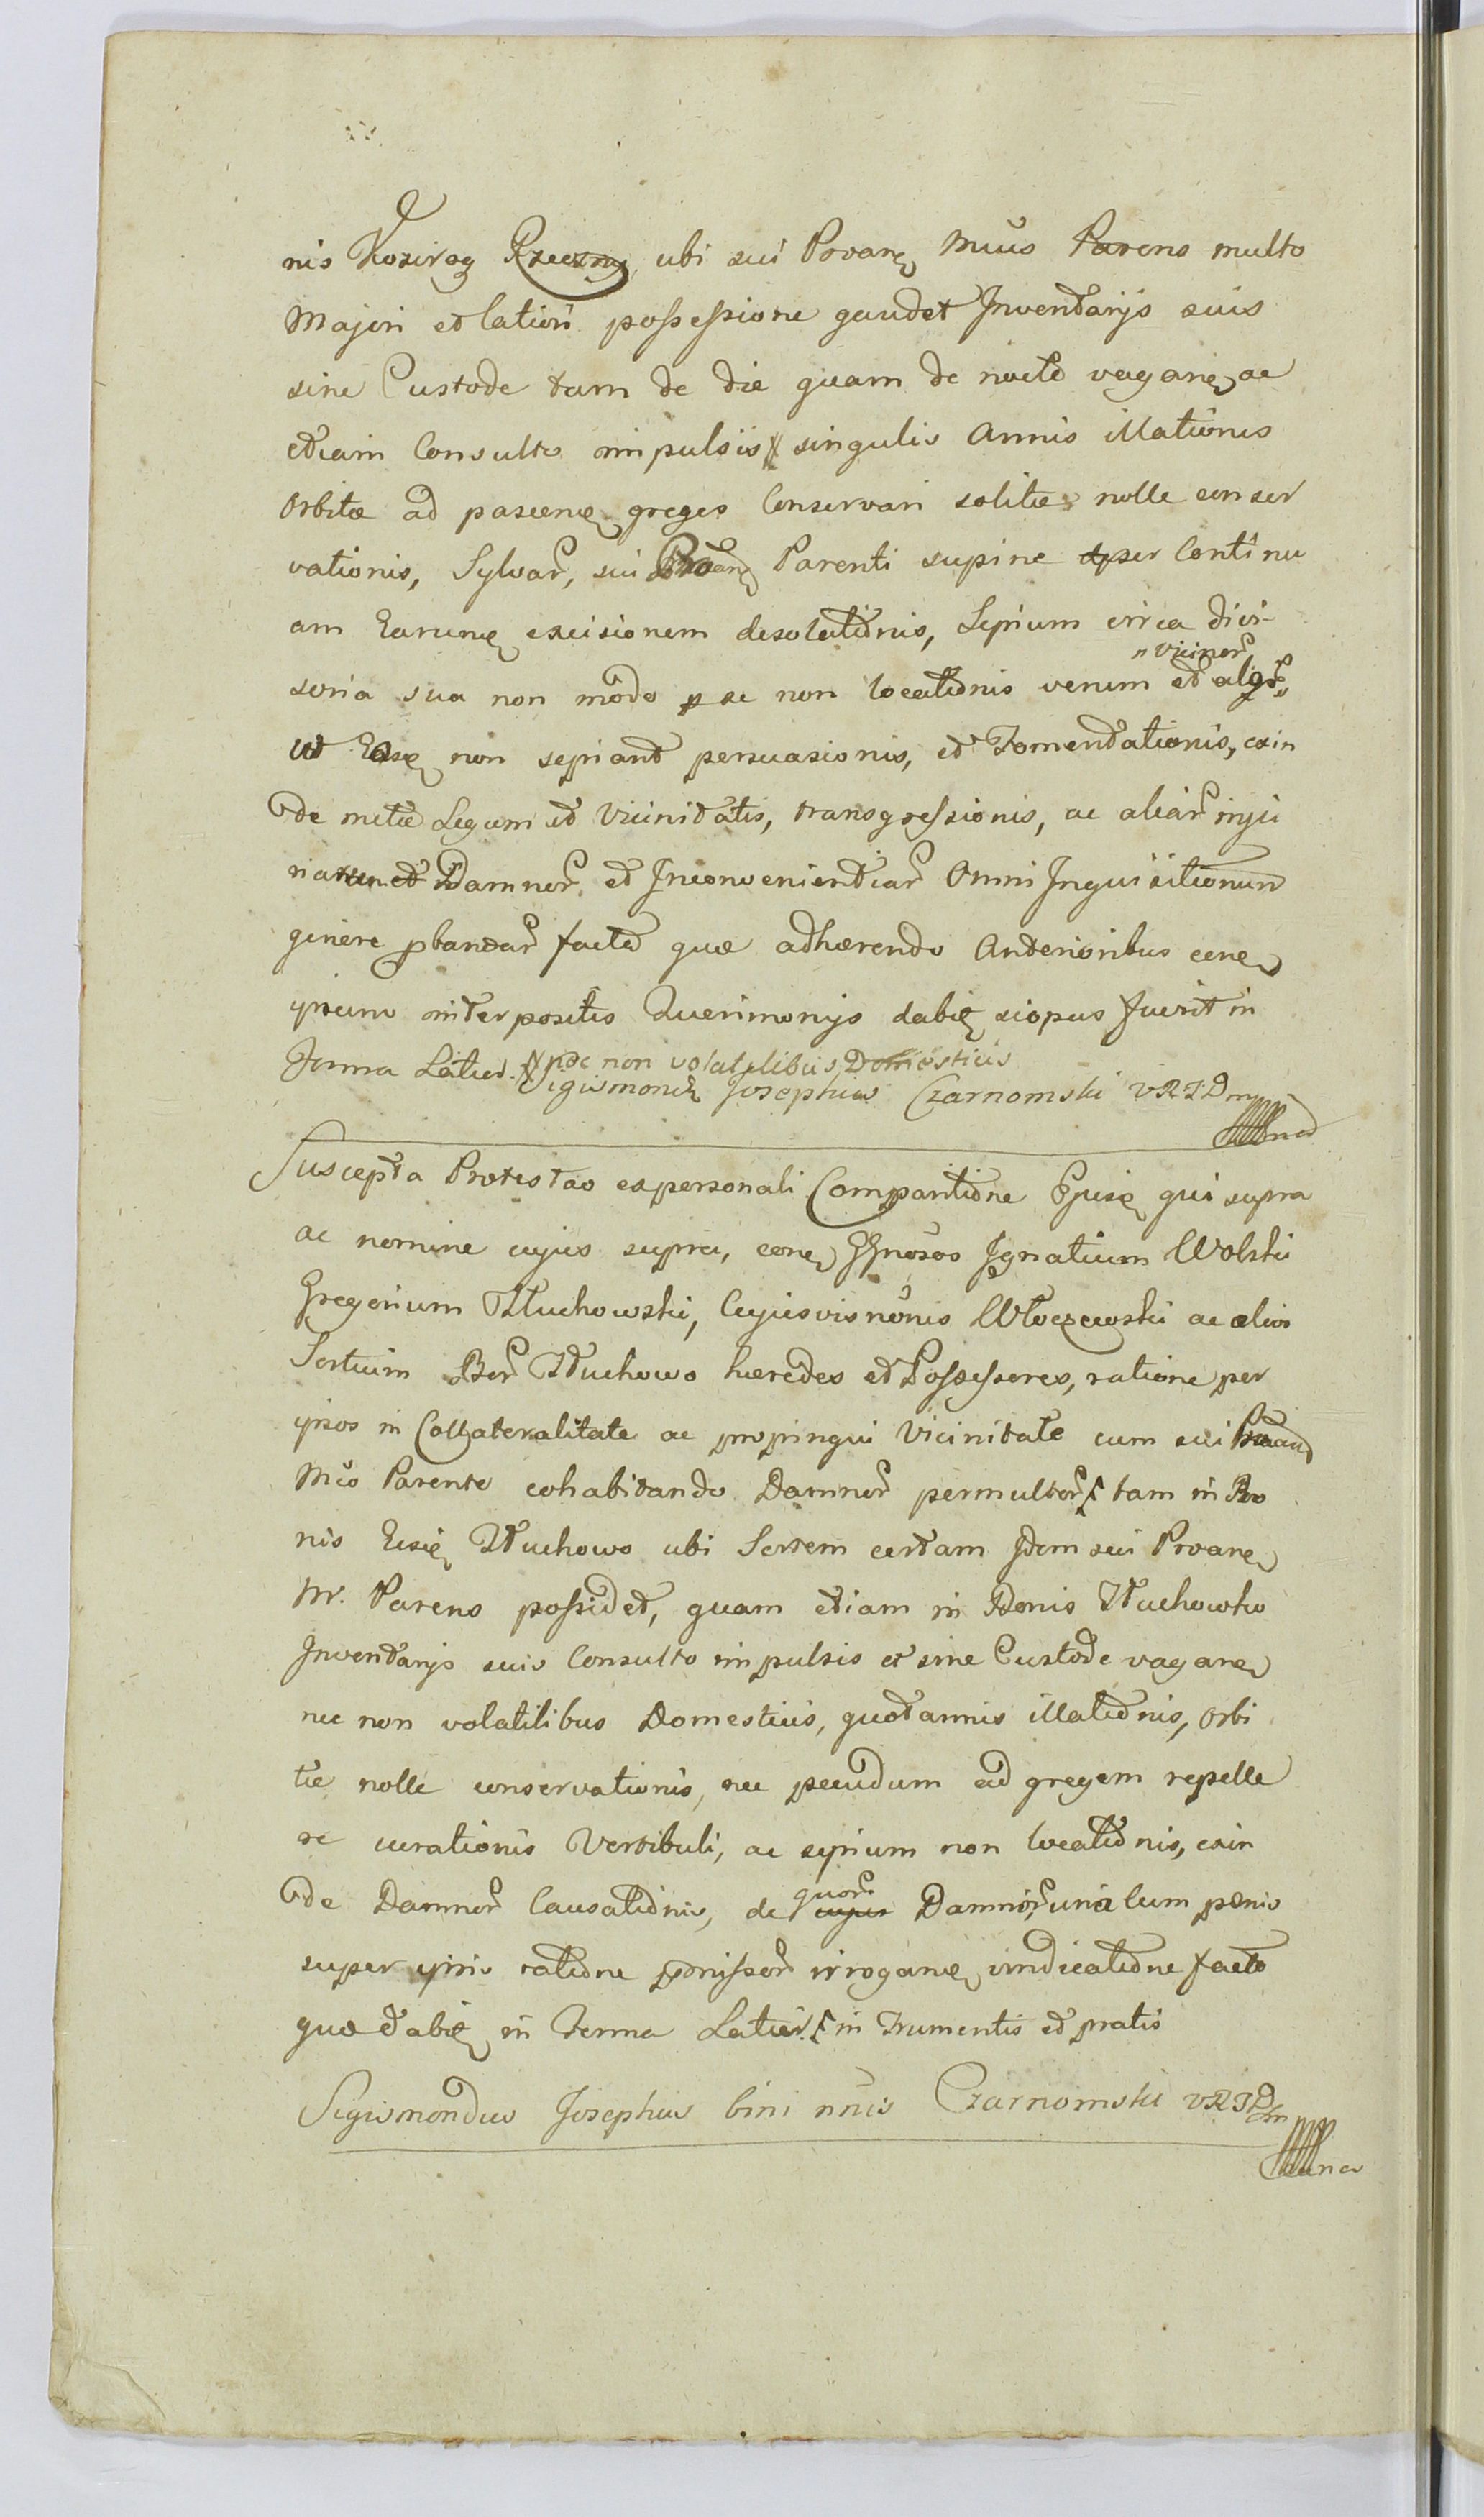 nis Kozirog Rzeczny, ubi sui Proane Mcus Parens multo
Majori et latiori possessione gaudet Inventarijs suis
sine Custode tam de die quam de nocte vagane ac
etiam Consulto impulsis singulis Annis illationis
Orbitæ ad pascene greges Conservari solitæ nolle conser
vationis, Sylvar, sui Proane Parenti supine per Continu
am Earune excisionem desolationis, Sepium circa divi-
soria sua non modo per se non locationis verum et alior
vicinor
ut Ease non sepiant persuasionis, et Fomentationis, exin
de metæ Legum et Vicinitatis, transgressionis, ac aliar inju
riarum et Damnor et Inconvenientiar Omni Inquisitionum
genere pbandar facta quæ adhærendo Anterioribus cone
ipsum interpositis Querimonijs dabie si opus fuerit in
Forma Latior. nec non volatilibus Domesticis
Sigismondus Josephus Czarnomski VRTD mp
Suscepta Protestao ex personali Compantione Ejuse qui supra
ac nomine cujus supra, cone GGnosos Ignatium Wolski
Gregorium Tluchowski, Cujusvis nonis Wloczewski ac alios
Sortium Bor Tluchowo hæredes et Possessores, ratione per
ipsos in Collateralitate ac propinqui Vicinitate cum sui Proane
Mco Parente cohabitando Damnor permultor tam in Bo
nis Eise Tluchowo ubi Sortem certam Idem sui Proane
M. Parens possidet, quam etiam in Bonis Tluchowko
Inventarijs suis Consulto impulsis et sine Custode vagane
nec non volatilibus Domesticis, quotannis illationis, Orbi
tæ nolle conservationis, nec pecudum ad gregem repelle
re curationis Vertibuli, ac sepium non locationis, exin
de Damnor Causationis, de quor cujus Damnor, una Cum pænis
super ipsis ratione præmissor irrogane vindicatione facto
quæ dabie in Forma Latior. in Frumentis et pratis
Sigismondus Josephus bini nnis Czarnomski VRTD mp